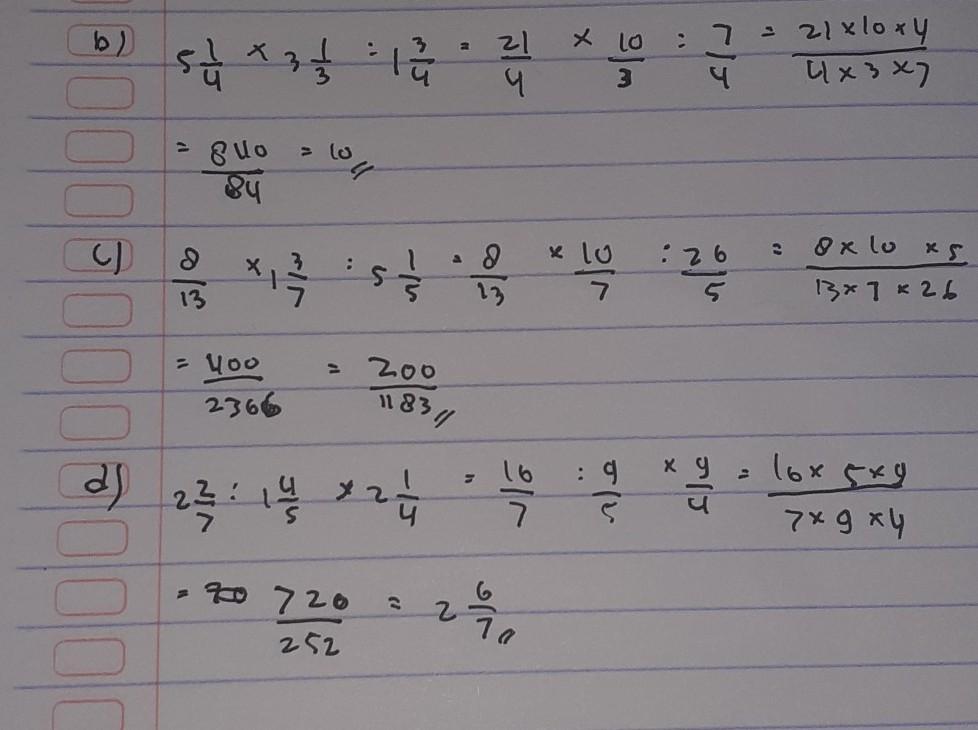 b) 5 1/4 × 3 1/3 : 1 3/4 = 21/4 × 10/3 : 7/4 = 21×10×4/4×3×7
= 840/84 = 10//
c) 8/13 × 1 3/7 : 5 1/5 = 8/13 × 10/7 : 26/5 = 8×10×5/13×7×26
= 400/2366 = 200/1183//
d) 2 2/7 : 1 4/5 × 2 1/4 = 16/7 : 9/5 × 9/4 = 16×5×9/7×9×4
= 720/252 = 2 6/7//